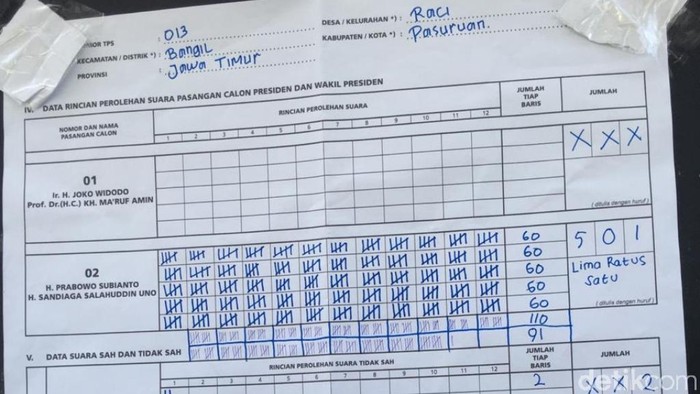 NOMOR TPS : 013
DESA / KELURAHAN *) : Raci
KECAMATAN / DISTRIK *) : Bangil
KABUPATEN / KOTA *) : Pasuruan.
PROVINSI : Jawa Timur
IV. DATA RINCIAN PEROLEHAN SUARA PASANGAN CALON PRESIDEN DAN WAKIL PRESIDEN
NOMOR DAN NAMA PASANGAN CALON
RINCIAN PEROLEHAN SUARA
JUMLAH TIAP BARIS
JUMLAH
1 2 3 4 5 6 7 8 9 10 11 12
01
Ir. H. JOKO WIDODO
Prof. Dr.(H.C.) KH. MA'RUF AMIN
X X X
(ditulis dengan huruf)
02
H. PRABOWO SUBIANTO
H. SANDIAGA SALAHUDDIN UNO
60
60
60
60
60
110
91
5 0 1
Lima Ratus
Satu
(ditulis dengan huruf)
V. DATA SUARA SAH DAN TIDAK SAH
RINCIAN PEROLEHAN SUARA TIDAK SAH
JUMLAH TIAP BARIS
JUMLAH
1 2 3 4 5 6 7 8 9 10 11 12
2
X X 2
detikcom